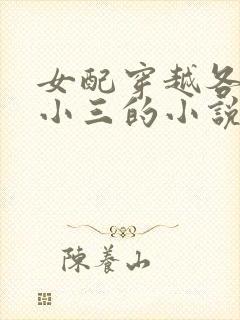 女配穿越各
小三的小說
陳養山